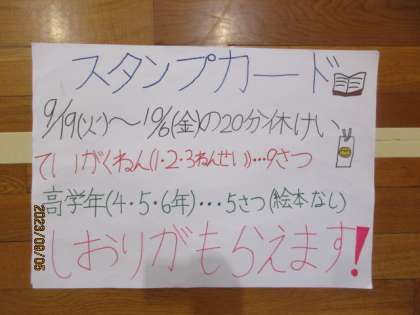 スタンプカード
9/19(火)～10/6(金)の20分休けい
ていがくねん(1・2・3ねんせい)…9さつ
高学年(4・5・6年)…5さつ(絵本なし)
しおりがもらえます!
2023/09/05